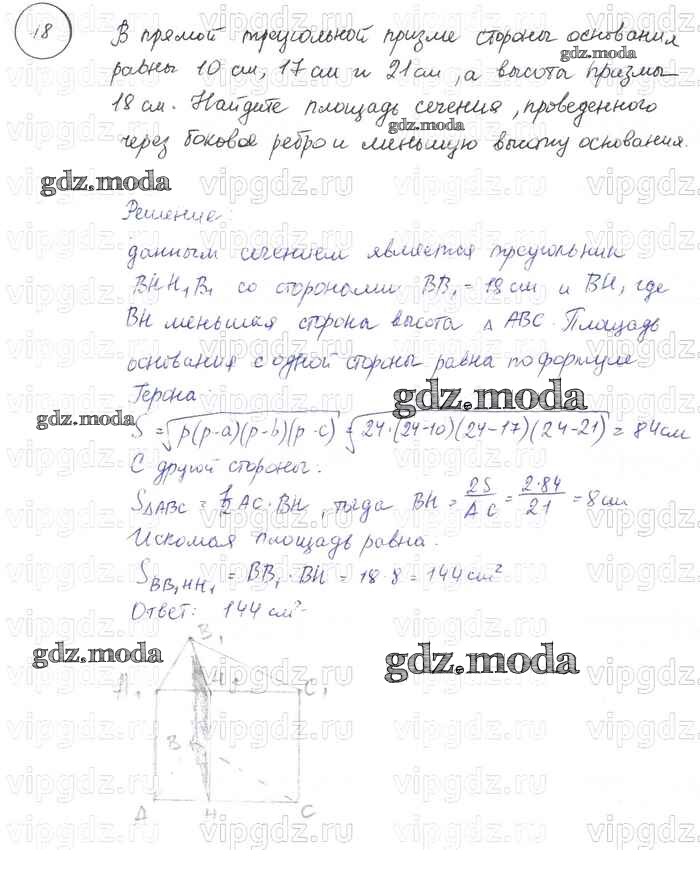 18
В прямой треугольной призме стороны основания
равны 10 см, 17 см и 21 см, а высота призмы
18 см. Найдите площадь сечения, проведенного
через боковое ребро и меньшую высоту основания.
Решение:
данным сечением является треугольник
BHH₁B₁ со сторонами BB₁ = 18 см и BH, где
BH меньшая стороны высота △ABC. Площадь
основания с одной стороны равна по формуле
Герона:
S = √p(p-a)(p-b)(p-c) = √24·(24-10)(24-17)(24-21) = 84 см
С другой стороны:
S△ABC = ½ AC · BH, тогда BH = 2S/AC = 2·84/21 = 8 см
Искомая площадь равна.
S BB₁HH₁ = BB₁ · BH = 18 · 8 = 144 см²
Ответ: 144 см²
B₁
A₁ H₁ C₁
B
A H C
gdz.moda
gdz.moda
gdz.moda
gdz.moda
gdz.moda
gdz.moda
gdz.moda
vipgdz.ru